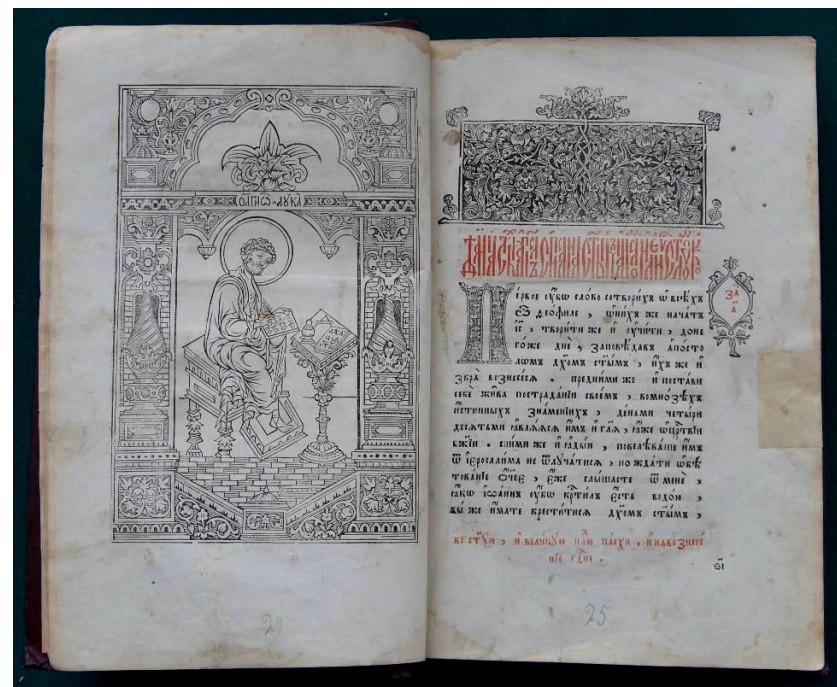 ОАГИОС ЛУКА
За҃
а҃
Первое ѹ҆бо сло́во сотвори́хъ ѡ҆ всѣ́хъ
ѽ ѳео́филе , ѡ҆ ни́хъ же нача́тъ
і҆с҃ , твори́ти же и҆ ѹ҆чи́ти , до не
го́же днѐ , заповѣ́давъ а҆по́сто
ломъ дх҃омъ ст҃ымъ , и҆́хъ же и҆
збра̀ вознесе́сѧ . пред ни́ми же и҆ поста́ви
себѐ жи́ва по страда́нїи свое́мъ , во мно́зѣхъ
и҆́стинныхъ зна́менїихъ , де́ньми четы́ри
десѧтьми ꙗ҆влѧ́ѧсѧ и҆̀мъ и҆ гл҃ѧ , ꙗ҆́же ѡ҆ цр҃твїи
бж҃їи . с ни́ми же и҆ ꙗ҆ды́й , повелѣва́ше и҆̀мъ
ѿ і҆еросали́ма не ѿлуча́тисѧ , но жда́ти ѡ҆бѣ
това́нїе ѻ҆́ч҃ее , є҆́же слы́шасте ѿ менѐ ,
ꙗ҆́кѡ і҆ѡа́ннъ ѹ҆́бо кр҃ти́лъ є҆́сть водо́ю ,
вы́ же и҆́мате крести́тисѧ дх҃омъ ст҃ы́мъ ,
во ст҃ѹ́ю , и҆ вели́кѹю нл҃ю па́схи . и҆ на вознесе́
нїе гд҃не .
24
25